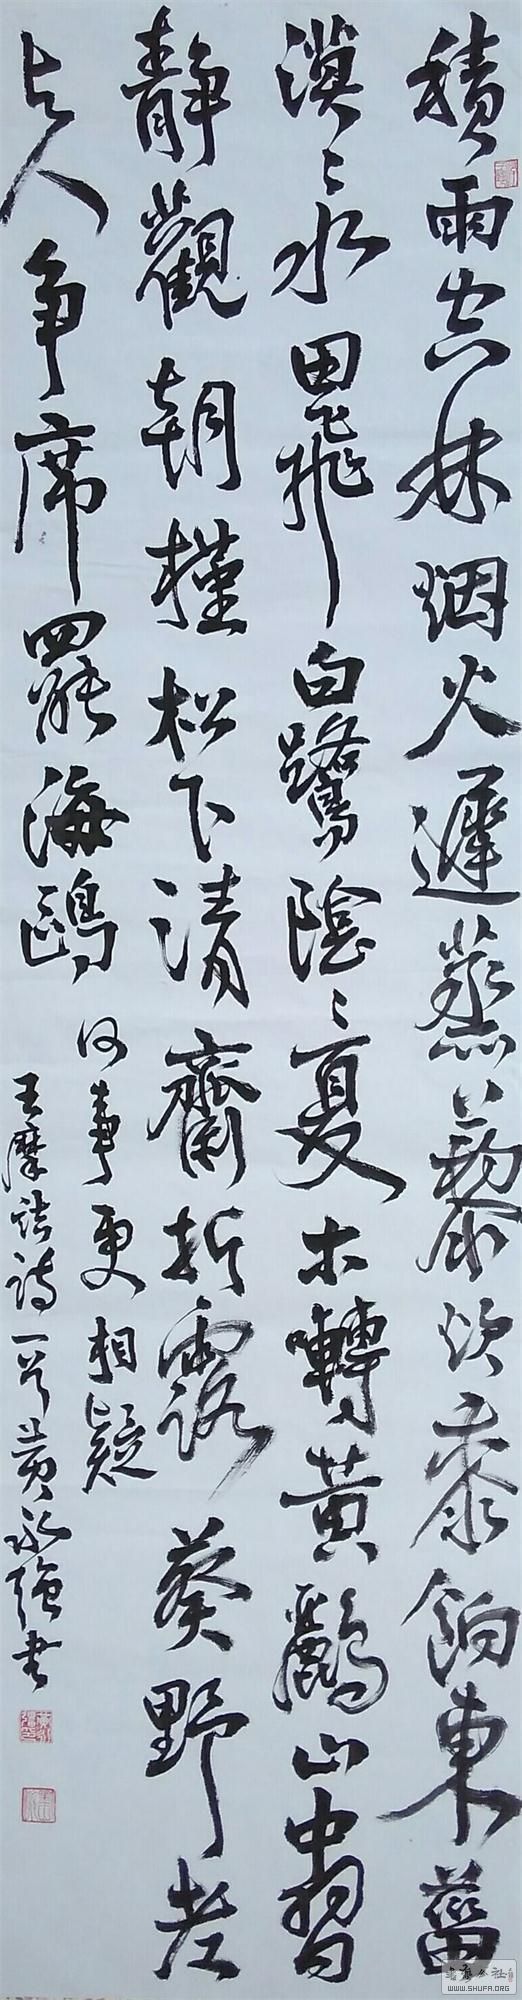 積雨空林烟火遲蒸藜炊黍餉東菑
漠〻水田飛白鷺陰〻夏木囀黃鸝山中習
静觀朝槿松下清齋折露葵野老
与人争席罷海鷗
何事更相疑
王摩詰詩一首黃永強書
WWW.SHUFA.ORG